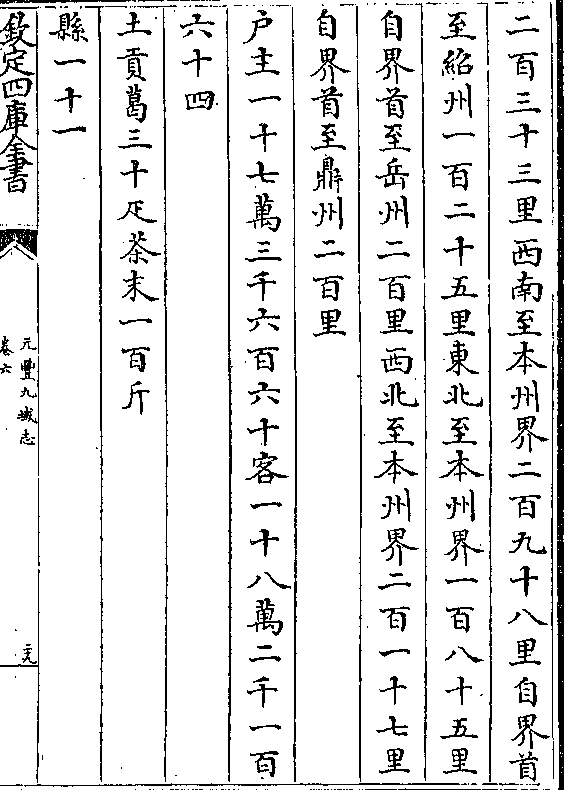 二百三十三里西南至本州界二百九十八里自界首
至紹州一百二十五里東北至本州界一百八十五里
自界首至岳州二百里西北至本州界二百一十七里
自界首至鼎州二百里
户主一十七萬三千六百六十客一十八萬二千一百
六十四
土貢葛三十疋茶末一百斤
縣一十一
欽定四庫全書
元豐九域志
卷六
二九